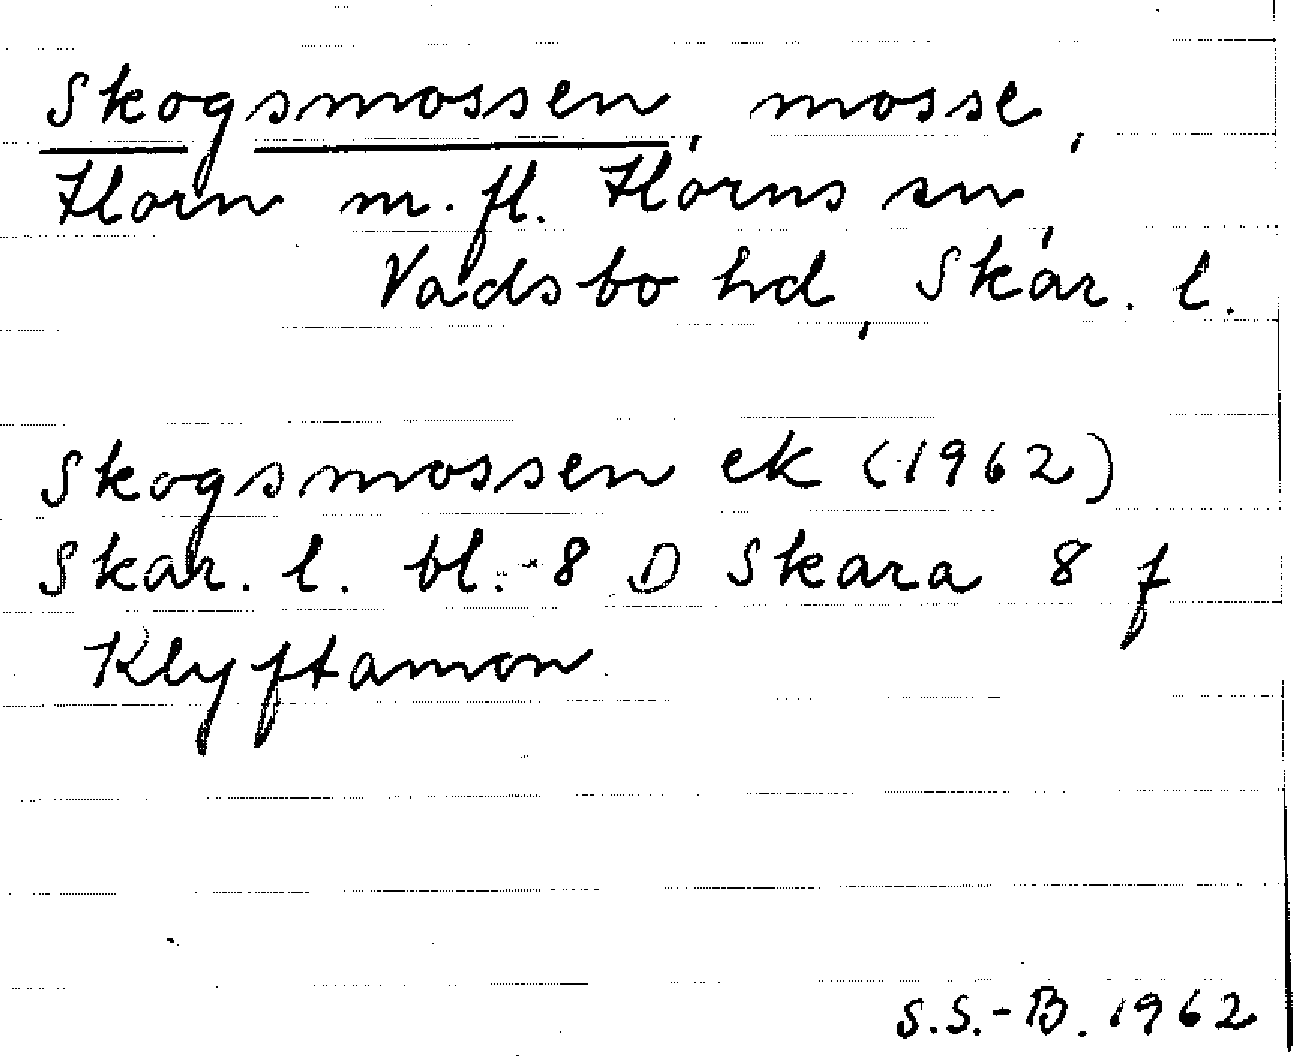 Skogsmossen, mosse,
Horn m. fl. Horns sn,
Vadsbo hd, Skar. l.
Skogsmossen ek (1962)
Skar. l. bl. 8 D Skara 8 f
Klyftamon.
S.S.-B. 1962